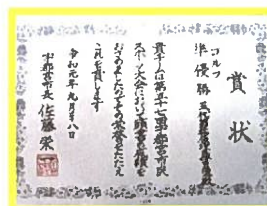 賞状
ゴルフ
準優勝
貴チームは第五十七回宇都宮市民
スポーツ大会において頭書の成績を
おさめましたのでその栄誉をたたえ
これを賞します
令和元年九月八日
宇都宮市長 佐藤栄一